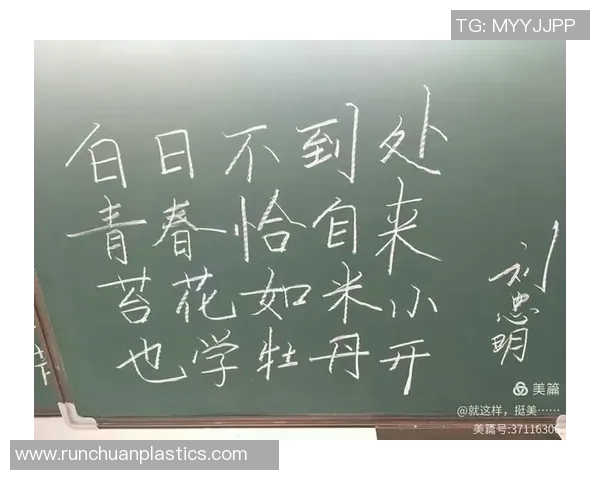 TG: MYYJJPP
白日不到处
青春恰自来
苔花如米小
也学牡丹开
刘忠明
美篇
@就这样，挺美……
美篇号:37116306
www.runchuanplastics.com